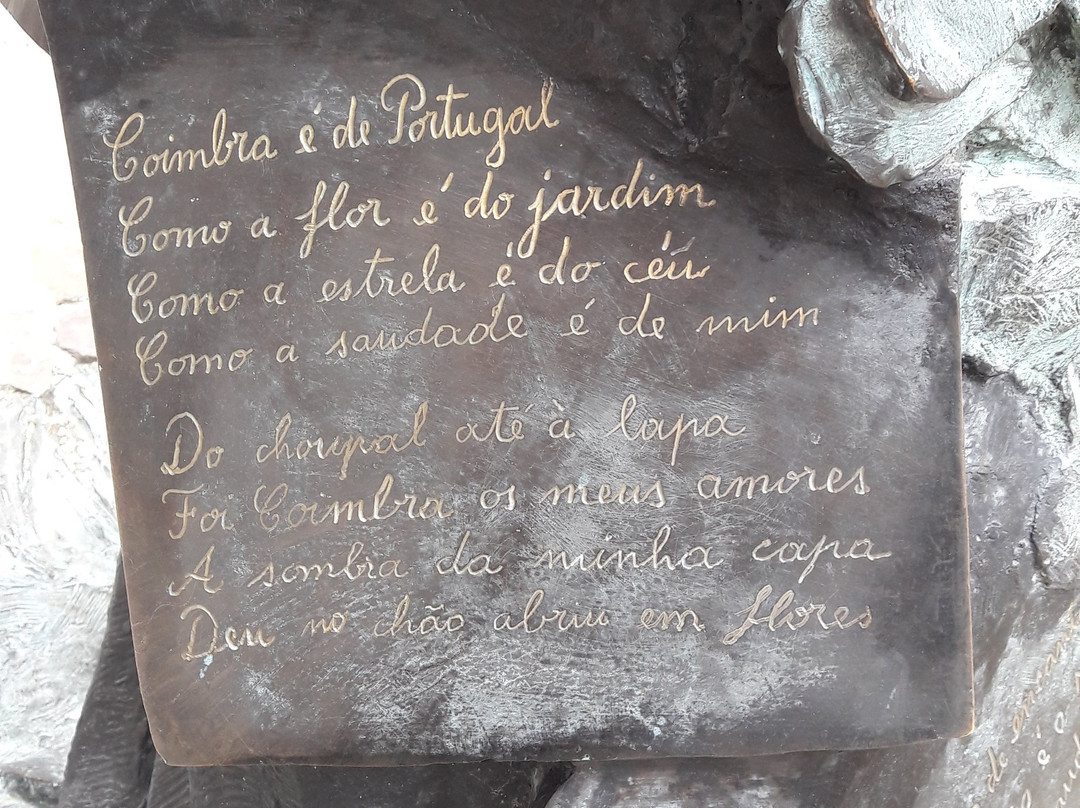 Coimbra é de Portugal
Como a flor é do jardim
Como a estrela é do céu
Como a saudade é de mim
Do choupal até à lapa
Foi Coimbra os meus amores
A sombra da minha capa
Deu no chão abriu em flores
de
é a